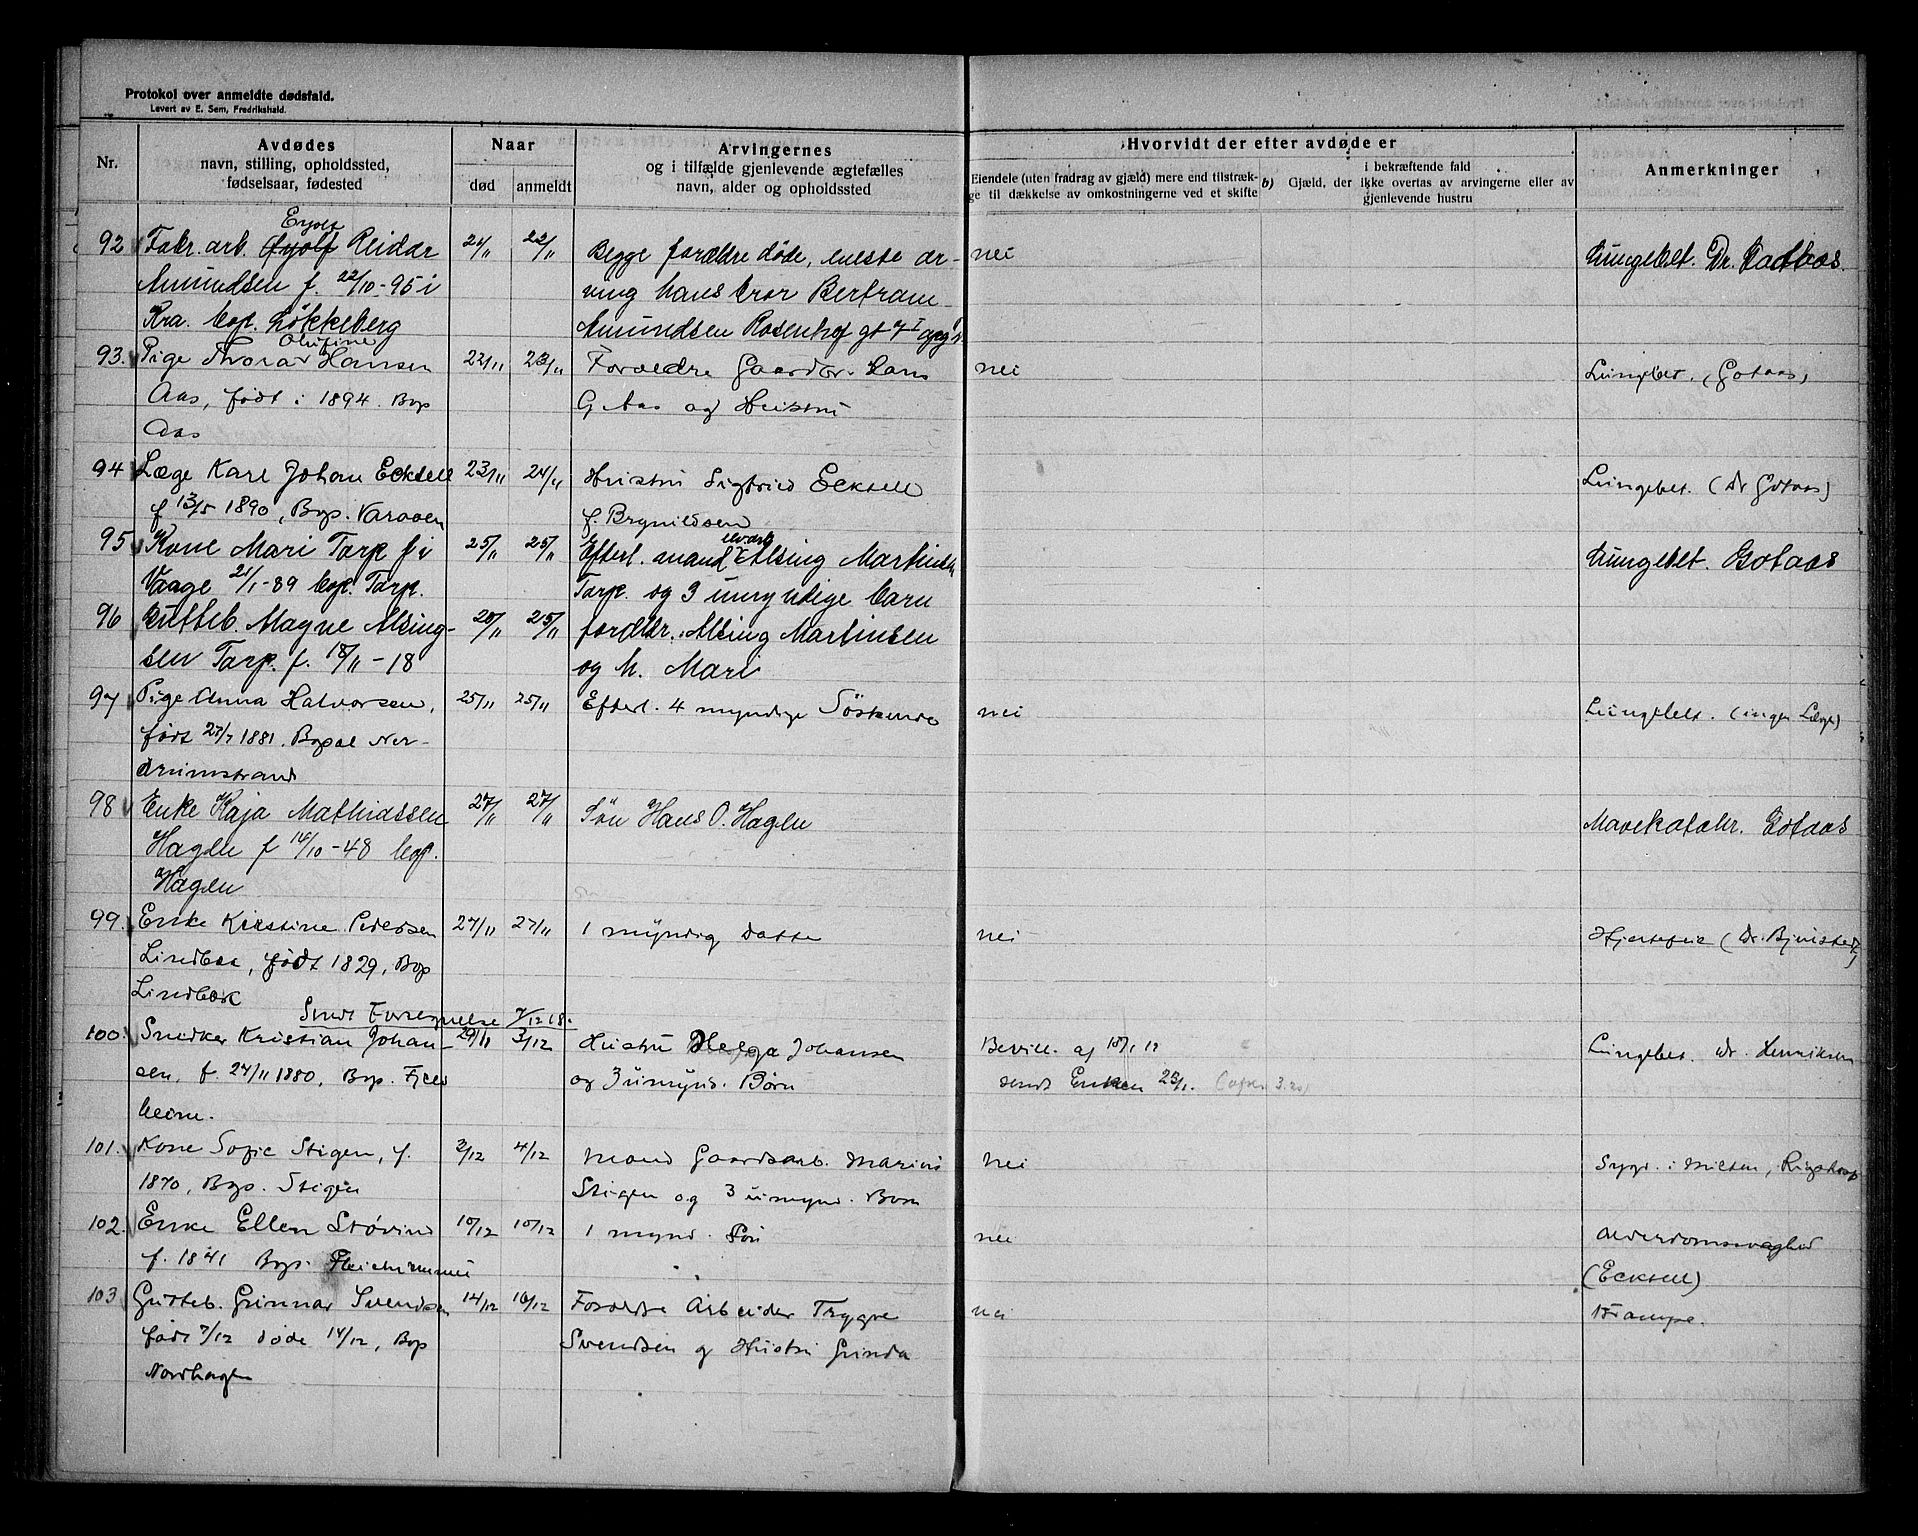 Protokol over anmeldte dødsfald.
Levert av E. Sem, Fredrikshald.
Nr.
Avdødes
navn, stilling, opholdssted,
fødselsaar, fødested
Naar
død
anmeldt
Arvingernes
og i tilfælde gjenlevende ægtefælles
navn, alder og opholdssted
Hvorvidt der efter avdøde er
Eiendele (uten fradrag av gjæld) mere end tilstræk-
ge til dækkelse av omkostningerne ved et skifte
i bekræftende fald
b) Gjæld, der ikke overtas av arvingerne eller av
gjenlevende hustru
Anmerkninger
92 Fabr. arb. Reidar 22/11 Begge forældre døde, eneste ar- nei Lungebet. Dr.
Amundsen f. 22/10-95 i ving hans bror Bertram
Kra. bop. Løkkeberg Amundsen Rosenhof gt 7
Olufine
93. Pige Thora Hansen 22/11 23/11 Forældre Gaardbr. Hans nei Lungebet. (Gotaas)
Aas, født i 1894. Bop G. Aas og Hustru
Aas
94 Læge Karl Johan Ecksell 23/11 24/11 Hustru Sigfried Ecksell Lungebet. (Dr Gotaas)
f 13/5 1890, Bop. Varaaen f. Brynildsen
95 Kone Mari Tarp f i 25/11 25/11 Efterl. mand Alsing Martinsen Lungebet. Gotaas
Vaage 21/1-89 bop. Tarp. Tarp. og 3 umyndige barn
96 Gutteb. Magne Alsing- 20/11 25/11 foreldr. Alsing Martinsen
sen Tarp. f. 18/11-18 og h. Mari
97 Pige Anna Halvorsen, 25/11 25/11 Efterl. 4 myndige Søskende nei Lungebet. (ingen Læge)
født 27/7 1881. Bopæl Ner-
drumstrand
98 Enke Kaja Mathiassen 27/11 27/11 Søn Hans O. Hagen Mavekatahr. Gotaas
Hagen f 16/10-48 bop.
Hagen
99. Enke Kirstine Pedersen 27/11 27/11 1 myndig Datte nei Hjertefeil (Dr. Bjørnstedt)
Lindbæk, født 1829, Bop
Lindbæk
Sendt 7/12 18.
100. Snedker Kristian Johan- 29/11 3/12 Hustru Helga Johansen Bevill. af Lungebet. Dr. Henriksen
sen, f. 24/11 1880, Bop. Fjeld og 3 umynd. Børn sendt Enken 25/1.
heim.
101. Kone Sofie Stigen, f. 3/12 4/12 Mand Gaardsarb. Marius nei Sygd. i milten, Ringstrøp
1870, Bop. Stigen Stigen og 3 umynd. Børn
102. Enke Ellen Støvind 10/12 10/12 1 mynd. Søn nei Alderdomssvaghed
f. 1841 Bop. (Ecksell)
103 Gutteb. Gunnar Svendsen 14/12 16/12 Forældre Arbeider Trygve nei Krampe.
født 7/12 døde 14/12, Bop Svendsen og Hustru Gunda
Nordhagen